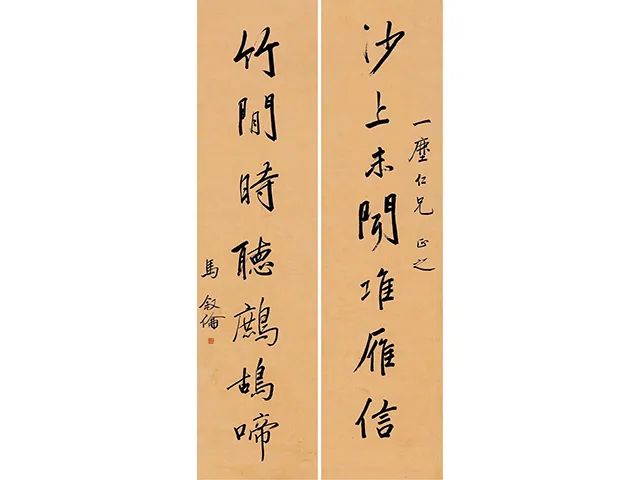 一塵仁兄正之
沙上未聞𨾊雁信
竹閒時聽鷓鴣啼
馬叙倫